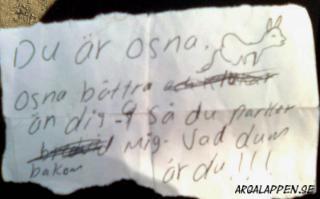 Du är osna.
Osna bättra
än dig-9 så du parker
mig. Vad dum
bakom är du!!!
ARGALAPPEN.SE